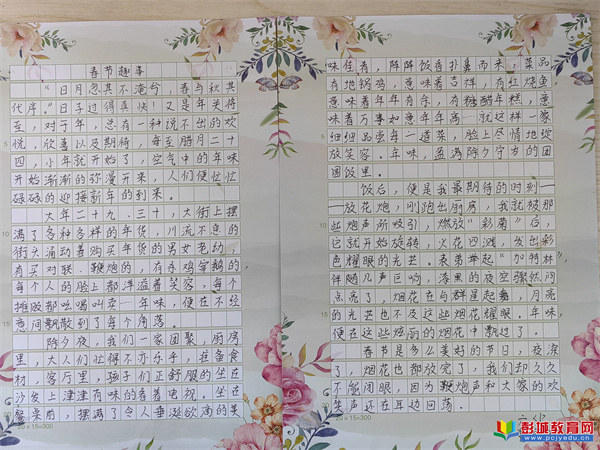 春节趣事
“日月忽其不淹兮，春与秋其
代序。”日子过得真快！又是年关将
至，对于年，总有一种说不出的欢
悦、欣喜以及期待，每至腊月二十
四，小年就开始了，空气中的年味
开始渐渐的弥漫开来，人们便忙忙
碌碌的迎接新年的到来。
大年二十九、三十，大街上摆
满了多种多样的年货，川流不息的
街头涌动着购买年货的男女老幼，
有买对联、鞭炮的，有买鸡宰鹅的，
每个人的脸上都洋溢着笑容，每个
摊贩都吆喝叫卖—年味，便在不经
意间飘散到了每个角落。
除夕夜，我们一家团聚，厨房
里，大人们忙得不亦乐乎，准备食
材，客厅里，孩子们正舒服的坐在
沙发上津津有味的看着电视。坐在
餐桌前，摆满了令人垂涎欲滴的美
20×15=300
味佳肴，阵阵饭香扑鼻而来，菜品
有地锅鸡，意味着吉祥，有红烧鱼，
意味着年年有余，有糖醋年糕，意
味着万事如意年年高…就这样一家
细细品尝每一道菜，脸上尽情地绽
放笑容。年味，盈满除夕守岁的团
圆饭里。
饭后，便是我最期待的时刻—
—放花炮，刚跑出厨房，我就被那
些炮声所吸引，燃放“彩菊”后，
它就开始旋转，火花四溅，发出彩
色耀眼的光芒。表弟举起“加特林”
伴随几声巨响，漆黑的夜空骤然间
点亮了，烟花在与群星起舞，月亮
的光芒也不及这些烟花耀眼。年味，
便在这些炫丽的烟花中飘过了。
春节是多么美好的节日，夜深
了，烟花也都放完了，我们却久久
不能闭眼，因为鞭炮声和大家的欢
笑声还在耳边回荡。
20×15=300
彭城教育网
www.pcjyedu.cn